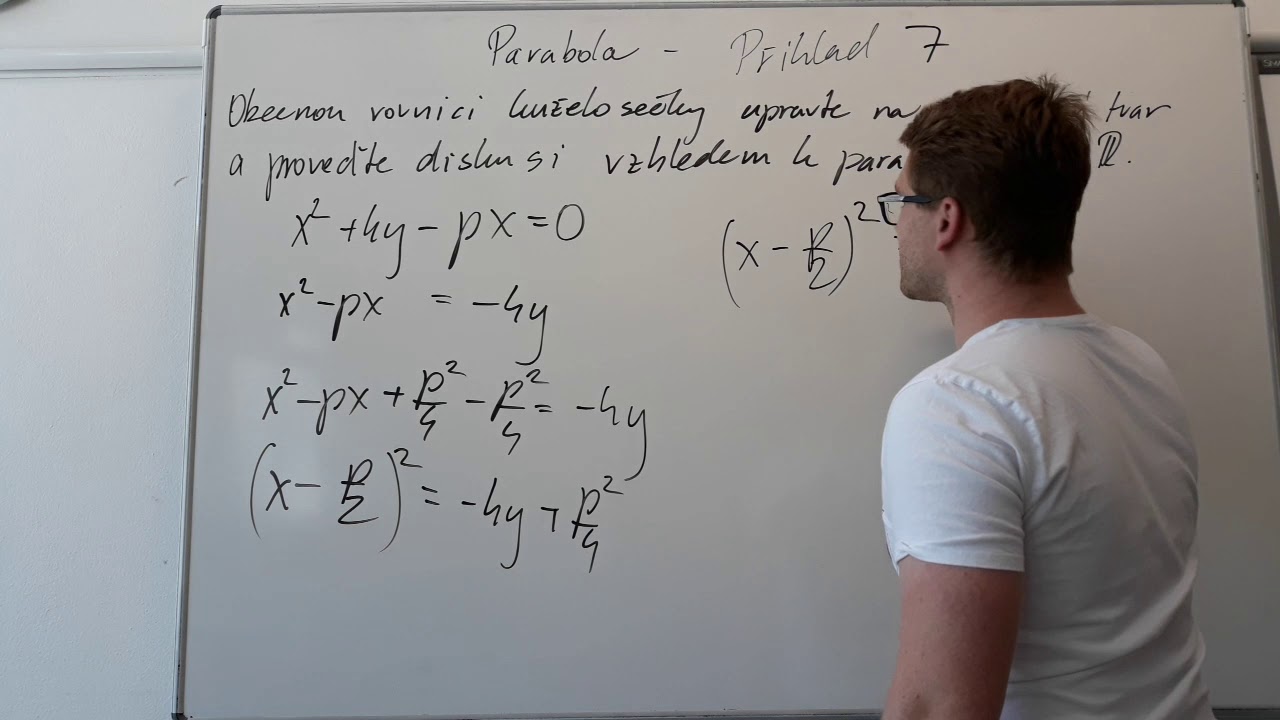 Parabola - Příklad 7
Obecnou rovnici kuželosečky upravte na tvar
a proveďte diskusi vzhledem k para R.
x² + 4y - px = 0
(x - p/2)²
x² - px = -4y
x² - px + p²/4 - p²/4 = -4y
(x - p/2)² = -4y + p²/4